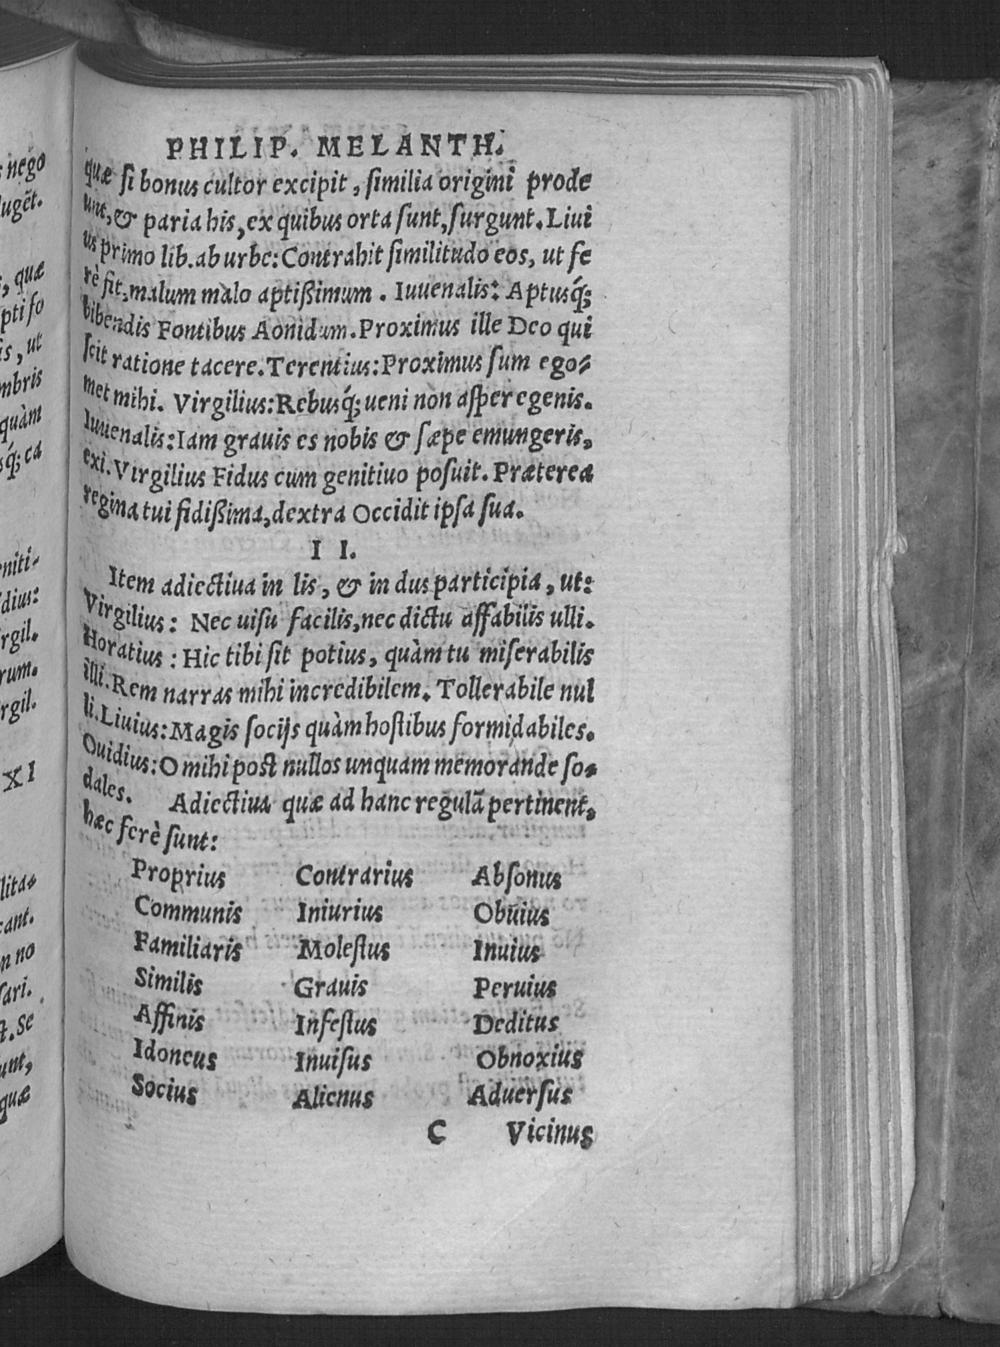 PHILIP. MELANTH.
quæ si bonus cultor excipit, similia origini prode
unt, & paria his, ex quibus orta sunt, surgunt. Liui
us primo lib. ab urbe: Contrahit similitudo eos, ut fe
rè fit, malum malo aptißimum. Iuuenalis: Aptusq́;
bibendis Fontibus Aonidum. Proximus ille Deo qui
scit ratione tacere. Terentius: Proximus sum ego-
met mihi. Virgilius: Rebusq́; ueni nón asper egenis.
Iuuenalis: Iam grauis es nobis & sæpe emungeris,
exi. Virgilius Fidus cum genitiuo posuit. Præterea
regina tui fidißima, dextra Occidit ipsa sua.
II.
Item adiectiua in lis, & in dus participia, ut:
Virgilius: Nec uisu facilis, nec dictu affabilis ulli.
Horatius: Hic tibi sit potius, quàm tu miserabilis
illi. Rem narras mihi incredibilem. Tollerabile nul
li. Liuius: Magis socijs quàm hostibus formidabiles.
Ouidius: O mihi post nullos unquam memorande so-
dales. Adiectiua quæ ad hanc regulã pertinent,
hæc ferè sunt:
Proprius Contrarius Absonus
Communis Iniurius Obuius
Familiaris Molestus Inuius
Similis Grauis Peruius
Affinis Infestus Deditus
Idoneus Inuisus Obnoxius
Socius Alienus Aduersus
C Vicinus